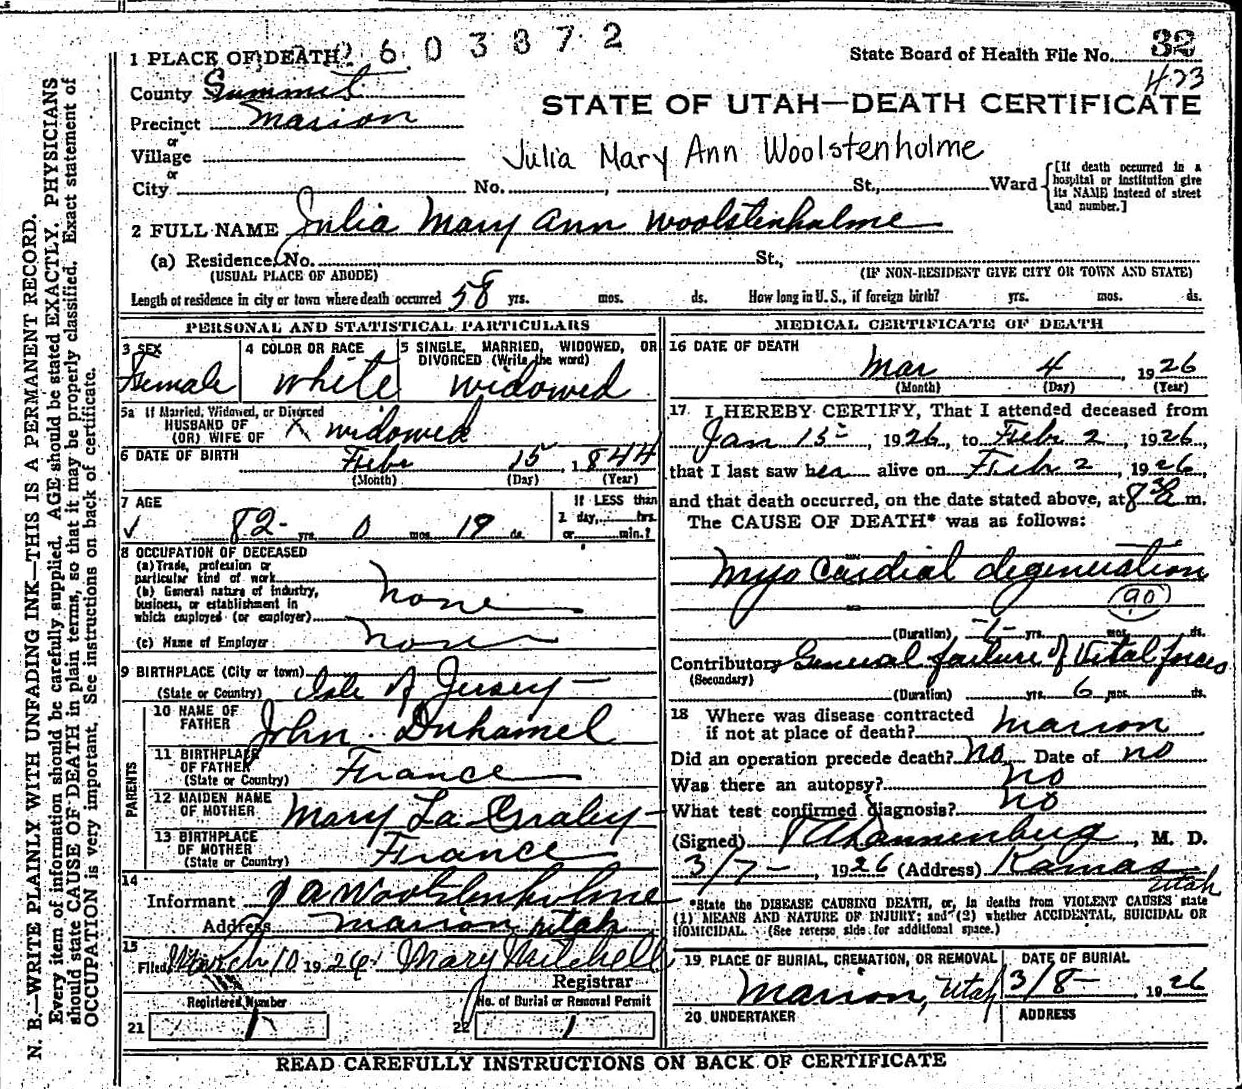 2603872
1 PLACE OF DEATH
State Board of Health File No. 32
423
County Summit
STATE OF UTAH—DEATH CERTIFICATE
Precinct Marion
or
Village
Julia Mary Ann Woolstenholme
or
City No. , St., Ward
[If death occurred in a hospital or institution give its NAME instead of street and number.]
2 FULL NAME Julia Mary Ann Woolstenholme
(a) Residence, No. St.,
(USUAL PLACE OF ABODE) (IF NON-RESIDENT GIVE CITY OR TOWN AND STATE)
Length of residence in city or town where death occurred 58 yrs. mos. ds. How long in U. S., if foreign birth? yrs. mos. ds.
PERSONAL AND STATISTICAL PARTICULARS
3 SEX
Female
4 COLOR OR RACE
White
5 SINGLE, MARRIED, WIDOWED, OR
DIVORCED (Write the word)
Widowed
5a If Married, Widowed, or Divorced
HUSBAND OF
(OR) WIFE OF X widowed
6 DATE OF BIRTH Febr 15, 1844
(Month) (Day) (Year)
7 AGE
✓ 82 yrs. 0 mos. 19 ds.
If LESS than
1 day, hrs.
or min.?
8 OCCUPATION OF DECEASED
(a) Trade, profession or
particular kind of work
(b) General nature of industry,
business, or establishment in
which employed (or employer) none
(c) Name of Employer none
9 BIRTHPLACE (City or town)
(State or Country) Isle of Jersey
PARENTS
10 NAME OF
FATHER John Duhamel
11 BIRTHPLACE
OF FATHER
(State or Country) France
12 MAIDEN NAME
OF MOTHER Mary La
13 BIRTHPLACE
OF MOTHER
(State or Country) France
14
Informant J A Woolstenholme
Address Marion Utah
15
Filed March 10 1926 Mary Mitchell
Registrar
Registered Number
21 1
No. of Burial or Removal Permit
22 1
MEDICAL CERTIFICATE OF DEATH
16 DATE OF DEATH
Mar 4 1926
(Month) (Day) (Year)
17 I HEREBY CERTIFY, That I attended deceased from
Jan 15, 1926, to Febr 2, 1926,
that I last saw her alive on Febr 2, 1926,
and that death occurred, on the date stated above, at 8 m.
The CAUSE OF DEATH* was as follows:
Myo Cardial degeneration
90
(Duration) yrs. mos. ds.
Contributory General failure of Vital forces
(Secondary)
(Duration) yrs. 6 mos. ds.
18 Where was disease contracted
if not at place of death? Marion
Did an operation precede death? no Date of no
Was there an autopsy? no
What test confirmed diagnosis? no
(Signed) , M. D.
3/7, 1926 (Address) Kamas
Utah
*State the DISEASE CAUSING DEATH, or, in deaths from VIOLENT CAUSES state
(1) MEANS AND NATURE OF INJURY; and (2) whether ACCIDENTAL, SUICIDAL OR
HOMICIDAL. (See reverse side for additional space.)
19 PLACE OF BURIAL, CREMATION, OR REMOVAL
Marion, Utah
DATE OF BURIAL
3/8, 1926
20 UNDERTAKER
ADDRESS
READ CAREFULLY INSTRUCTIONS ON BACK OF CERTIFICATE
N. B.—WRITE PLAINLY WITH UNFADING INK—THIS IS A PERMANENT RECORD.
Every item of information should be carefully supplied. AGE should be stated EXACTLY. PHYSICIANS
should state CAUSE OF DEATH in plain terms, so that it may be properly classified. Exact statement of
OCCUPATION is very important. See instructions on back of certificate.